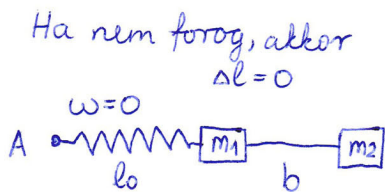 Ha nem forog, akkor
Δl = 0
ω=0
A m1 m2
l0 b